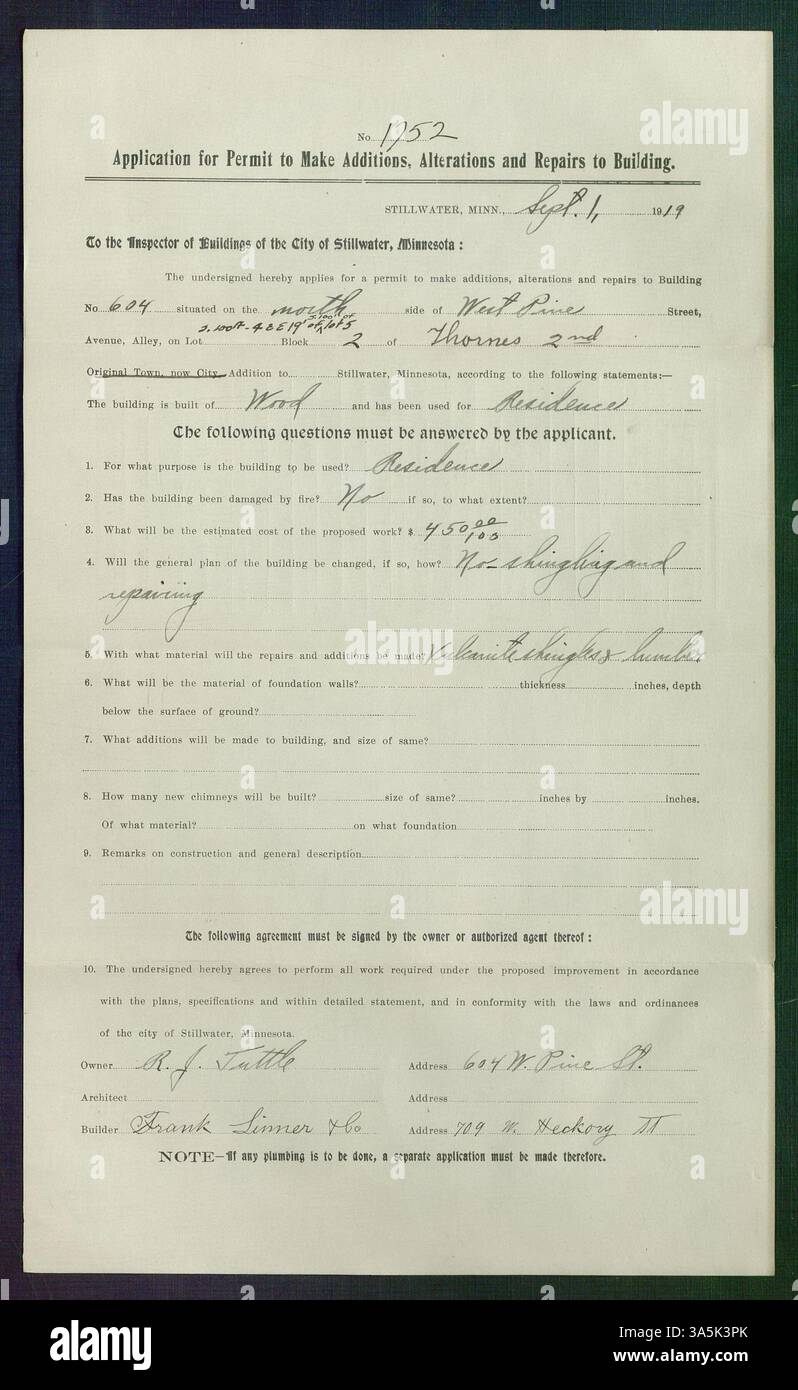 No. 1752
Application for Permit to Make Additions, Alterations and Repairs to Building.
STILLWATER, MINN., Sept. 1, 1919
To the Inspector of Buildings of the City of Stillwater, Minnesota:
The undersigned hereby applies for a permit to make additions, alterations and repairs to Building
No 604 situated on the north side of West Pine Street,
S. 100 ft - 4 & E 19' of S. 100 ft of Lot 5
Avenue, Alley, on Lot Block 2 of Thornes 2nd
Original Town, now City, Addition to Stillwater, Minnesota, according to the following statements:—
The building is built of Wood and has been used for Residence
The following questions must be answered by the applicant.
1. For what purpose is the building to be used? Residence
2. Has the building been damaged by fire? No if so, to what extent?
3. What will be the estimated cost of the proposed work? $ 450 00/100
4. Will the general plan of the building be changed, if so, how? No - shingling and
repairing
5. With what material will the repairs and additions be made? Vulcanite shingles & lumber
6. What will be the material of foundation walls? thickness inches, depth
below the surface of ground?
7. What additions will be made to building, and size of same?
8. How many new chimneys will be built? size of same? inches by inches.
Of what material? on what foundation
9. Remarks on construction and general description
The following agreement must be signed by the owner or authorized agent thereof:
10. The undersigned hereby agrees to perform all work required under the proposed improvement in accordance
with the plans, specifications and within detailed statement, and in conformity with the laws and ordinances
of the city of Stillwater, Minnesota.
Owner R. J. Tuttle Address 604 W. Pine St.
Architect Address
Builder Frank Linner & Co Address 709 W. Heckory St
NOTE—If any plumbing is to be done, a separate application must be made therefore.
alamy
Image ID: 3A5K3PK
www.alamy.com